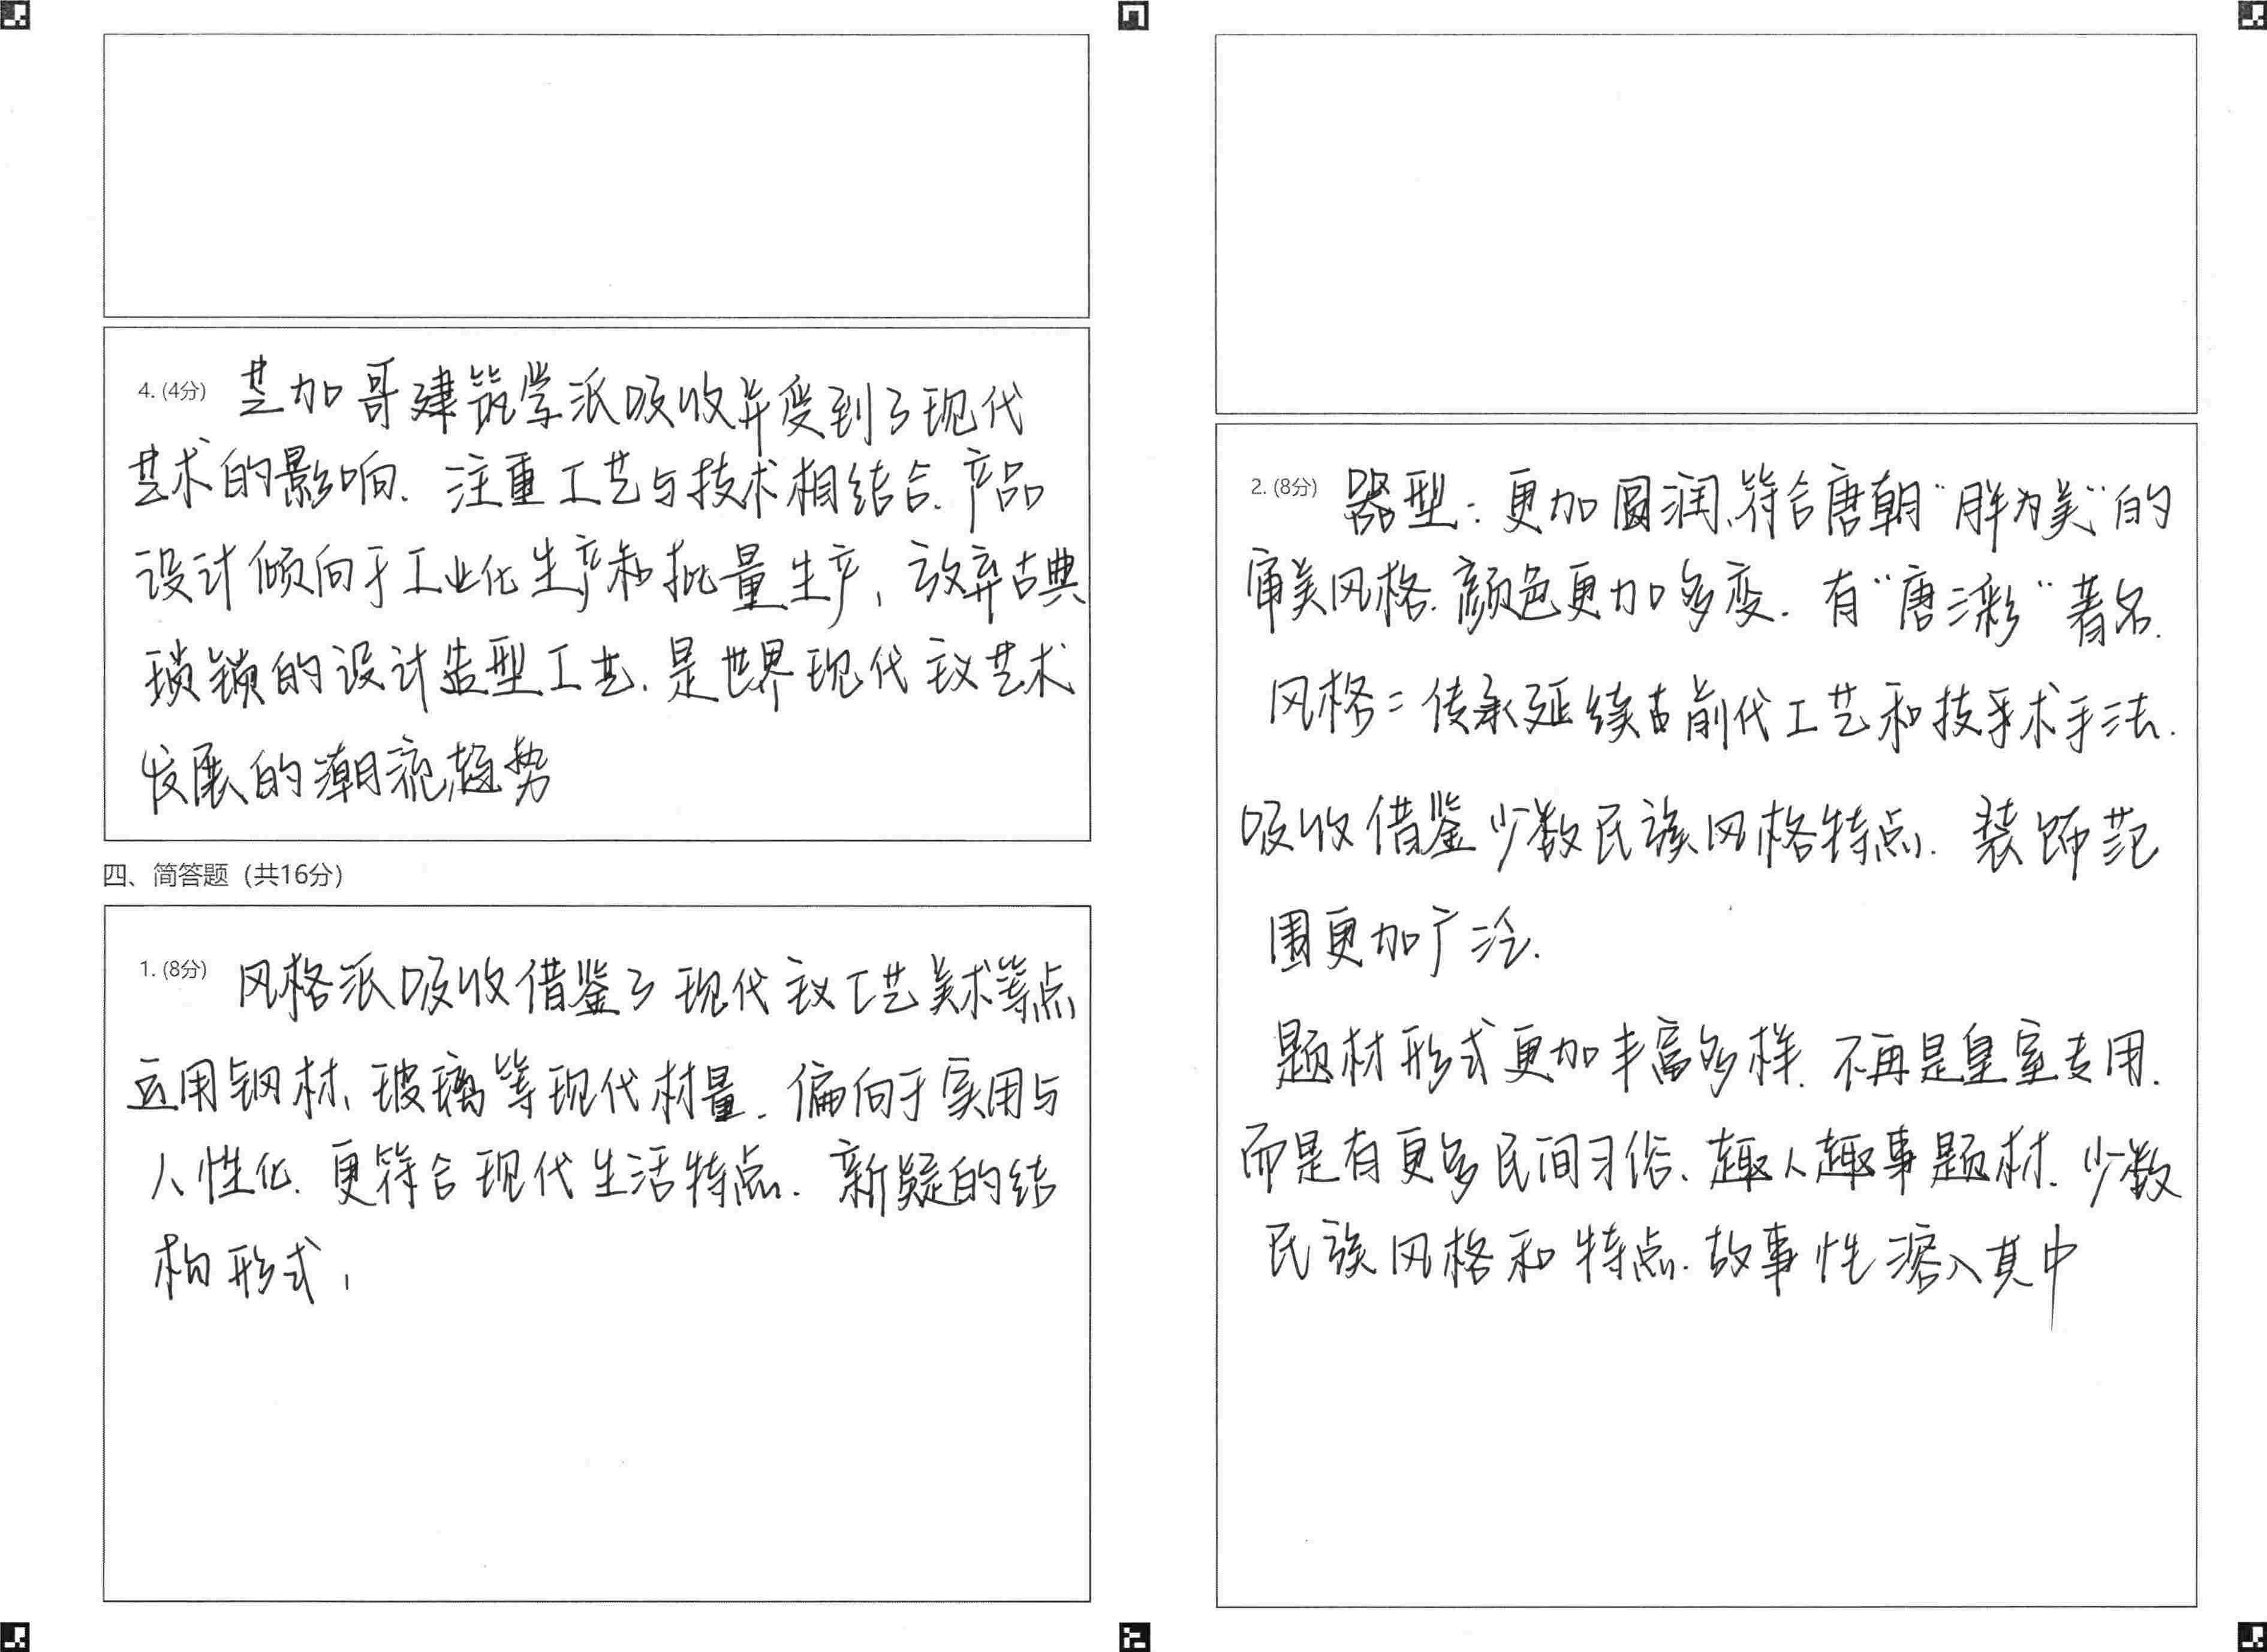 4. (4分) 芝加哥建筑学派吸收并受到了现代
艺术的影响. 注重工艺与技术相结合. 产品
设计倾向于工业化生产和批量生产, 放弃古典
琐锁的设计造型工艺. 是世界现代主义艺术
发展的潮流趋势
四、简答题（共16分）
1. (8分) 风格派吸收借鉴了现代主义工艺美术等点
运用钢材、玻璃等现代材量. 偏向于实用与
人性化. 更符合现代生活特点. 新疑的结
构形式,
2. (8分) 器型: 更加圆润、符合唐朝“胖为美”的
审美风格. 颜色更加多变. 有“唐三彩”著名.
风格: 传承延续古前代工艺和技手术手法.
吸收借鉴少数民族风格特点. 装饰范
围更加广泛.
题材形式更加丰富多样. 不再是皇室专用.
而是有更多民间习俗、趣人趣事题材. 少数
民族风格和特点. 故事性溶入其中